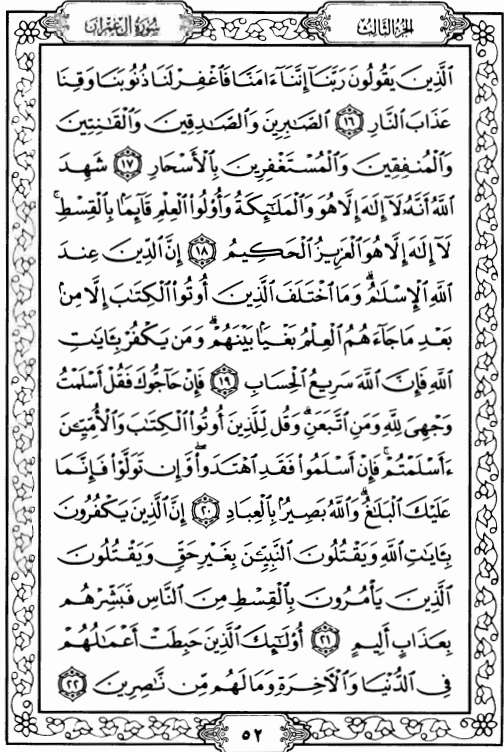 سُورَةُ آلِ عِمْرَانَ
الجُزْءُ الثَّالِثُ
ٱلَّذِينَ يَقُولُونَ رَبَّنَآ إِنَّنَآ ءَامَنَّا فَٱغْفِرْ لَنَا ذُنُوبَنَا وَقِنَا
عَذَابَ ٱلنَّارِ ١٦ ٱلصَّٰبِرِينَ وَٱلصَّٰدِقِينَ وَٱلْقَٰنِتِينَ
وَٱلْمُنفِقِينَ وَٱلْمُسْتَغْفِرِينَ بِٱلْأَسْحَارِ ١٧ شَهِدَ
ٱللَّهُ أَنَّهُۥ لَآ إِلَٰهَ إِلَّا هُوَ وَٱلْمَلَٰٓئِكَةُ وَأُو۟لُوا۟ ٱلْعِلْمِ قَآئِمًۢا بِٱلْقِسْطِۚ
لَآ إِلَٰهَ إِلَّا هُوَ ٱلْعَزِيزُ ٱلْحَكِيمُ ١٨ إِنَّ ٱلدِّينَ عِندَ
ٱللَّهِ ٱلْإِسْلَٰمُۗ وَمَا ٱخْتَلَفَ ٱلَّذِينَ أُوتُوا۟ ٱلْكِتَٰبَ إِلَّا مِنۢ
بَعْدِ مَا جَآءَهُمُ ٱلْعِلْمُ بَغْيًۢا بَيْنَهُمْۗ وَمَن يَكْفُرْ بِـَٔايَٰتِ
ٱللَّهِ فَإِنَّ ٱللَّهَ سَرِيعُ ٱلْحِسَابِ ١٩ فَإِنْ حَآجُّوكَ فَقُلْ أَسْلَمْتُ
وَجْهِىَ لِلَّهِ وَمَنِ ٱتَّبَعَنِۗ وَقُل لِّلَّذِينَ أُوتُوا۟ ٱلْكِتَٰبَ وَٱلْأُمِّيِّـۧنَ
ءَأَسْلَمْتُمْۚ فَإِنْ أَسْلَمُوا۟ فَقَدِ ٱهْتَدَوا۟ۖ وَّإِن تَوَلَّوْا۟ فَإِنَّمَا
عَلَيْكَ ٱلْبَلَٰغُۗ وَٱللَّهُ بَصِيرٌۢ بِٱلْعِبَادِ ٢٠ إِنَّ ٱلَّذِينَ يَكْفُرُونَ
بِـَٔايَٰتِ ٱللَّهِ وَيَقْتُلُونَ ٱلنَّبِيِّـۧنَ بِغَيْرِ حَقٍّ وَيَقْتُلُونَ
ٱلَّذِينَ يَأْمُرُونَ بِٱلْقِسْطِ مِنَ ٱلنَّاسِ فَبَشِّرْهُم
بِعَذَابٍ أَلِيمٍ ٢١ أُو۟لَٰٓئِكَ ٱلَّذِينَ حَبِطَتْ أَعْمَٰلُهُمْ
فِى ٱلدُّنْيَا وَٱلْءَاخِرَةِ وَمَا لَهُم مِّن نَّٰصِرِينَ ٢٢
٥٢